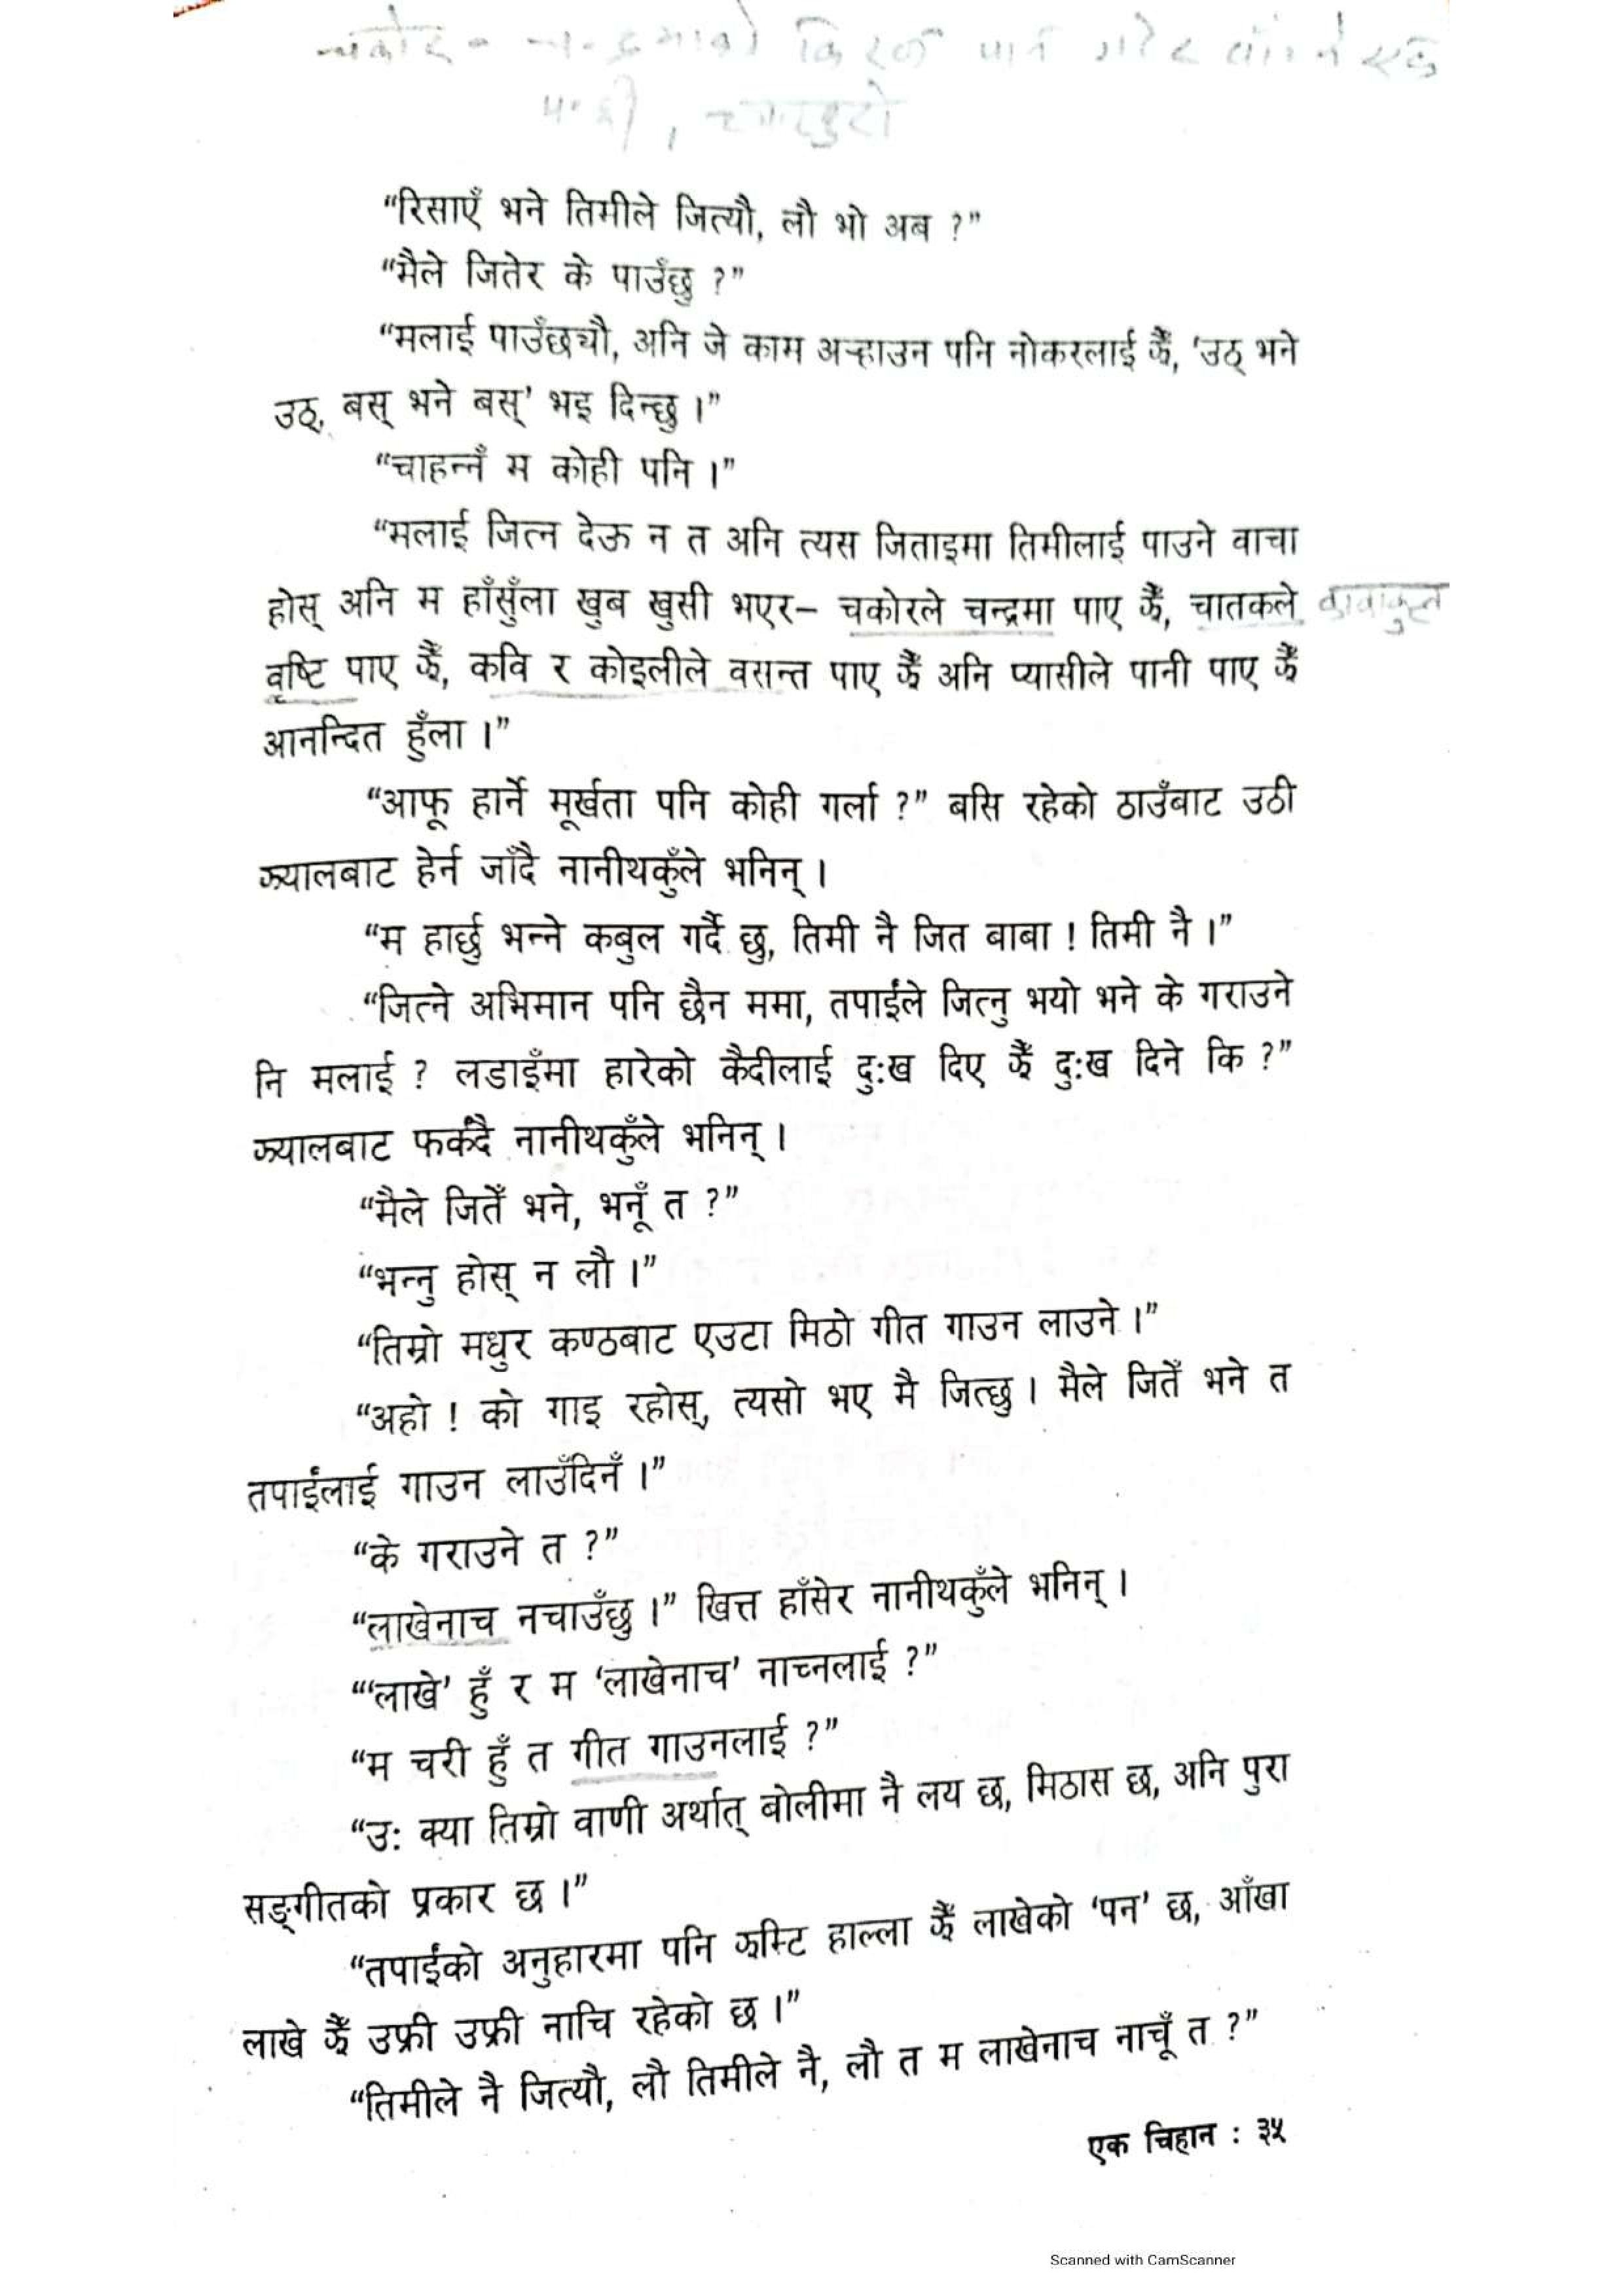 चकोर - चन्द्रमाको किरण पान गरेर बाँच्ने एक
पन्छी,
“रिसाएँ भने तिमीले जित्यौ, लौ भो अब ?”
“मैले जितेर के पाउँछु ?”
“मलाई पाउँछ्यौ, अनि जे काम अर्‍हाउन पनि नोकरलाई झैँ, ‘उठ् भने
उठ्, बस् भने बस्’ भइ दिन्छु ।”
“चाहन्नँ म कोही पनि ।”
“मलाई जित्न देऊ न त अनि त्यस जिताइमा तिमीलाई पाउने वाचा
होस् अनि म हाँसुँला खुब खुसी भएर– चकोरले चन्द्रमा पाए झैँ, चातकले
वृष्टि पाए झैँ, कवि र कोइलीले वसन्त पाए झैँ अनि प्यासीले पानी पाए झैँ
आनन्दित हुँला ।”
“आफू हार्ने मूर्खता पनि कोही गर्ला ?” बसि रहेको ठाउँबाट उठी
झ्यालबाट हेर्न जाँदै नानीथकुँले भनिन् ।
“म हार्छु भन्ने कबुल गर्दै छु, तिमी नै जित बाबा ! तिमी नै ।”
“जित्ने अभिमान पनि छैन ममा, तपाईंले जित्नु भयो भने के गराउने
नि मलाई ? लडाइँमा हारेको कैदीलाई दुःख दिए झैँ दुःख दिने कि ?”
झ्यालबाट फर्कंदै नानीथकुँले भनिन् ।
“मैले जितेँ भने, भनूँ त ?”
“भन्नु होस् न लौ ।”
“तिम्रो मधुर कण्ठबाट एउटा मिठो गीत गाउन लाउने ।”
“अहो ! को गाइ रहोस्, त्यसो भए मै जित्छु । मैले जितेँ भने त
तपाईंलाई गाउन लाउँदिनँ ।”
“के गराउने त ?”
“लाखेनाच नचाउँछु ।” खित्त हाँसेर नानीथकुँले भनिन् ।
“‘लाखे’ हुँ र म ‘लाखेनाच’ नाच्नलाई ?”
“म चरी हुँ त गीत गाउनलाई ?”
“उः क्या तिम्रो वाणी अर्थात् बोलीमा नै लय छ, मिठास छ, अनि पुरा
सङ्गीतको प्रकार छ ।”
“तपाईंको अनुहारमा पनि झम्टि हाल्ला झैँ लाखेको ‘पन’ छ, आँखा
लाखे झैँ उफ्री उफ्री नाचि रहेको छ ।”
“तिमीले नै जित्यौ, लौ तिमीले नै, लौ त म लाखेनाच नाचूँ त ?”
एक चिहान : ३५
Scanned with CamScanner